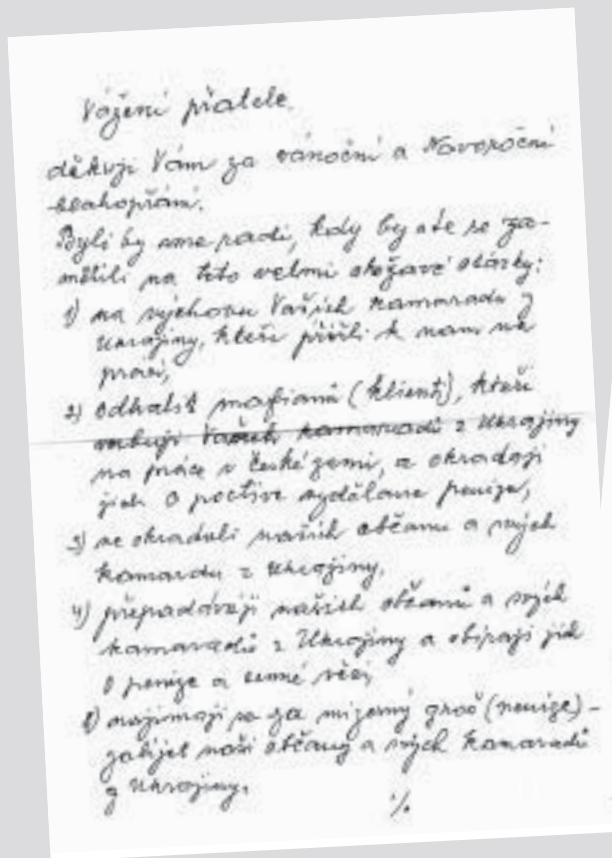 Vážení přatele
děkuji Vám za vánoční a Novoroční
blahopřání.
Byli by sme radi, kdy by ste se za-
mětili na teto velmi otázky:
1) na výchovu Vašich kamaradu z
Ukrajiny, kteři přišli k nam na
praci,
2) odhalit mafianů (klienti), kteři
kamaradů z Ukrajiny
na práce v české zemi, a okradaji
jich o poctive vydělane penize,
3) ne okradali našich občanu a svých
kamardu z Ukrajiny,
4) přepadávaji našich občanů a svých
kamaradů z Ukrajiny a obiraji jich
o penize a cenné věci,
najimaji se za mizerný groš (penize) -
zabijet naši občany a svých kamaradů
z Ukrajiny.
%